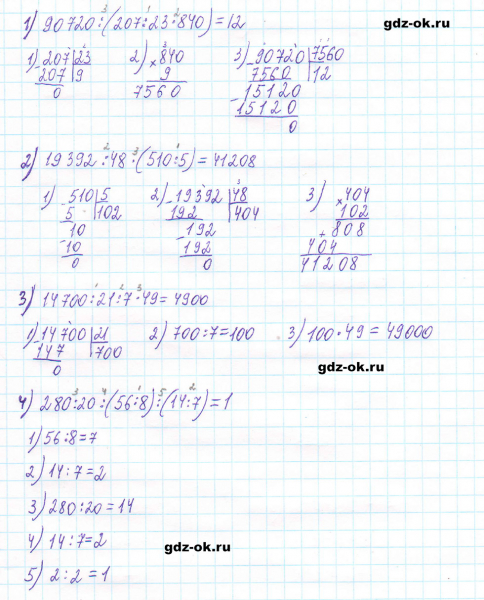 1) 90720:(207:23·840)=12
gdz-ok.ru
1) 207 | 23
207 | 9
0
2) × 840
9
7560
3) 90720 | 7560
7560 | 12
15120
15120
0
2) 19392:48·(510:5)=41208
1) 510 | 5
5 | 102
10
10
0
2) 19392 | 48
192 | 404
192
192
0
3) × 404
102
+ 808
404
41208
3) 14700:21:7·49=4900
1) 14700 | 21
147 | 700
0
2) 700:7=100
3) 100·49=49000
gdz-ok.ru
4) 280:20:(56:8):(14:7)=1
1) 56:8=7
2) 14:7=2
3) 280:20=14
4) 14:7=2
gdz-ok.ru
5) 2:2=1